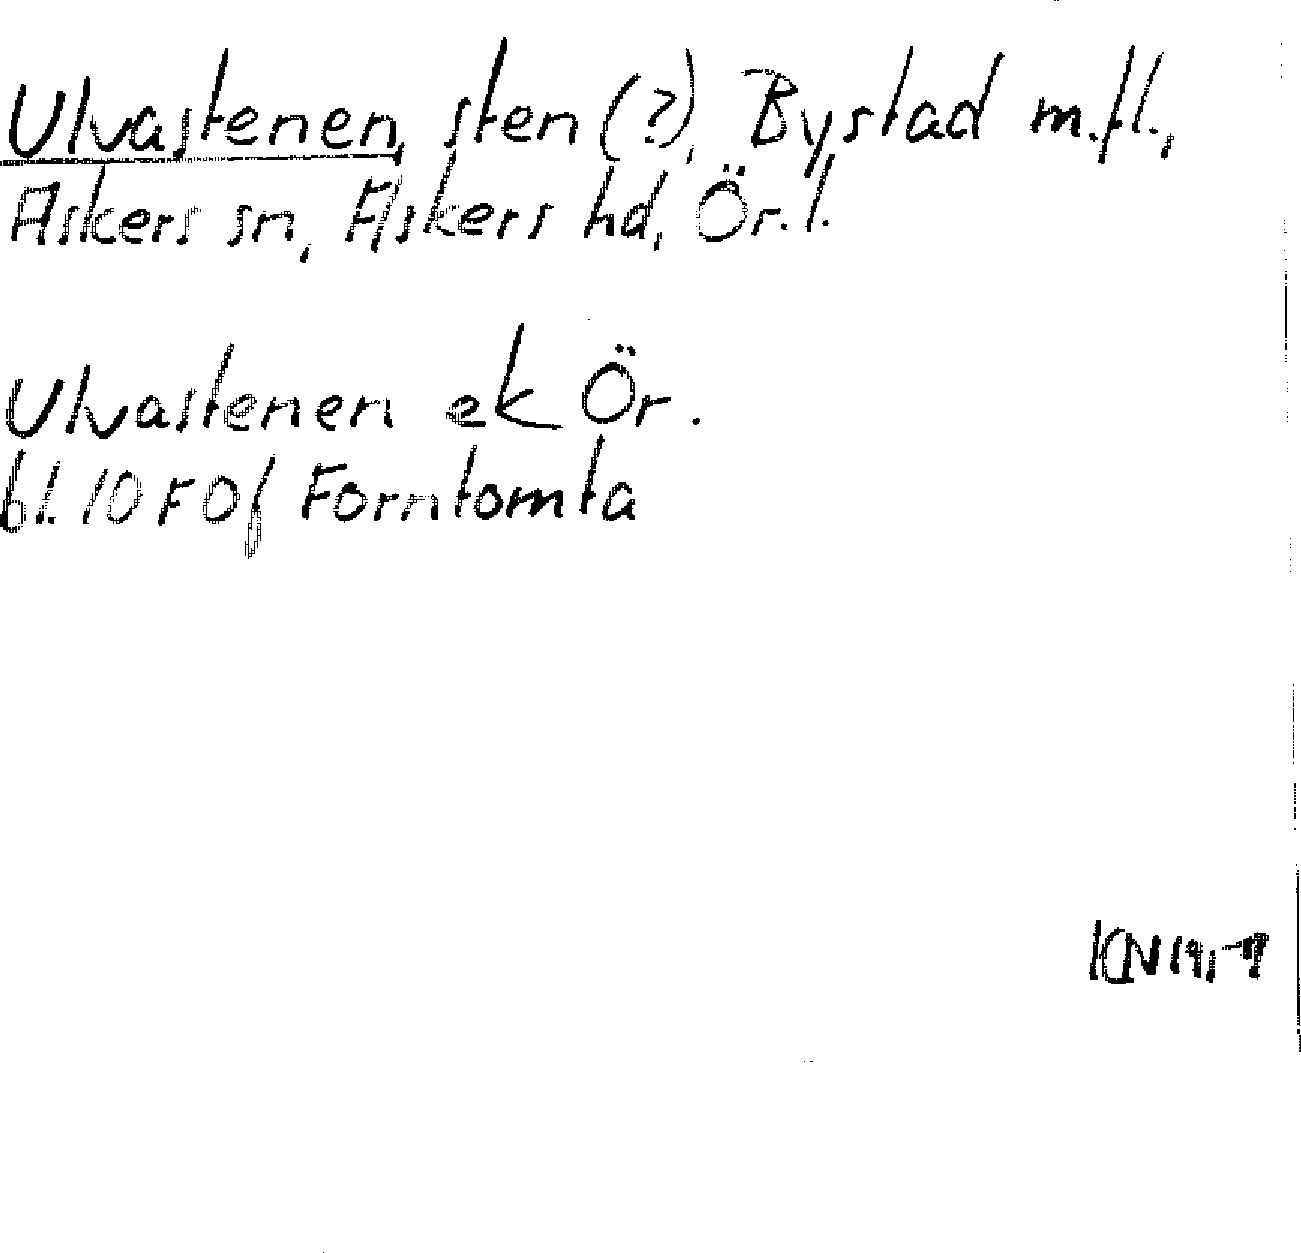 Ulvastenen, sten (?), Bystad m.fl.,
Askers sn, Askers hd, Ör. l.
Ulvastenen ek Ör.
bl. 10F 0f Forntomta